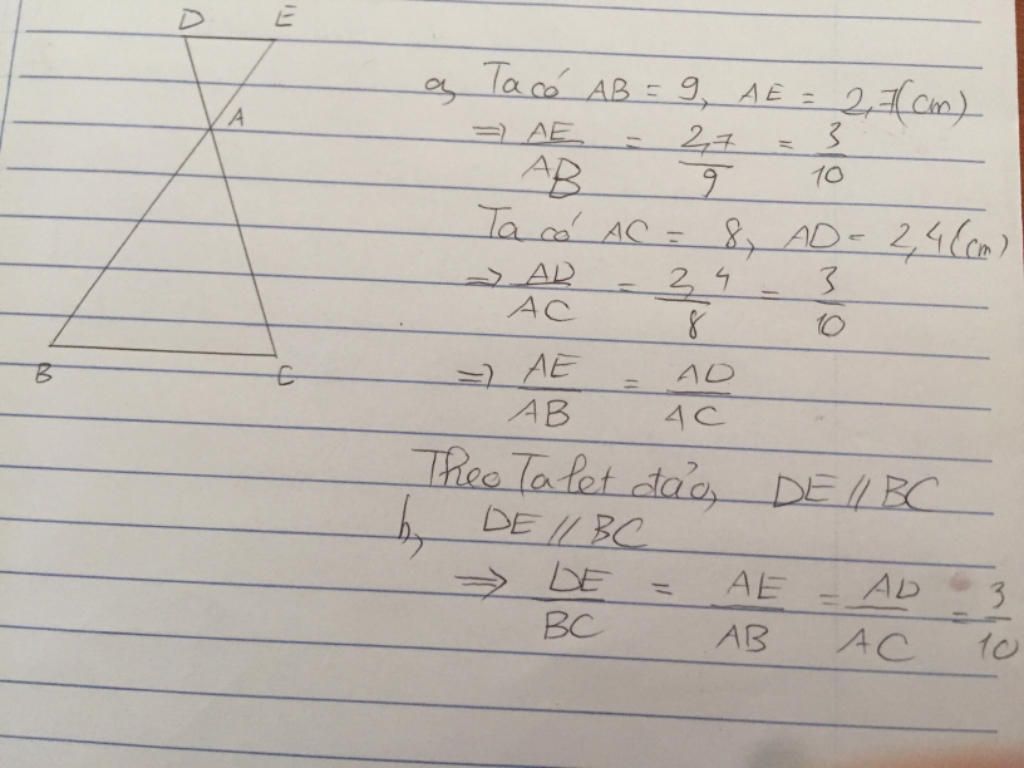 D E
A
B C
a, Ta có AB = 9, AE = 2,7(cm)
=> AE/AB = 2,7/9 = 3/10
Ta có AC = 8, AD = 2,4(cm)
=> AD/AC = 2,4/8 = 3/10
=> AE/AB = AD/AC
Theo Talet đảo, DE // BC
b, DE // BC
=> DE/BC = AE/AB = AD/AC = 3/10